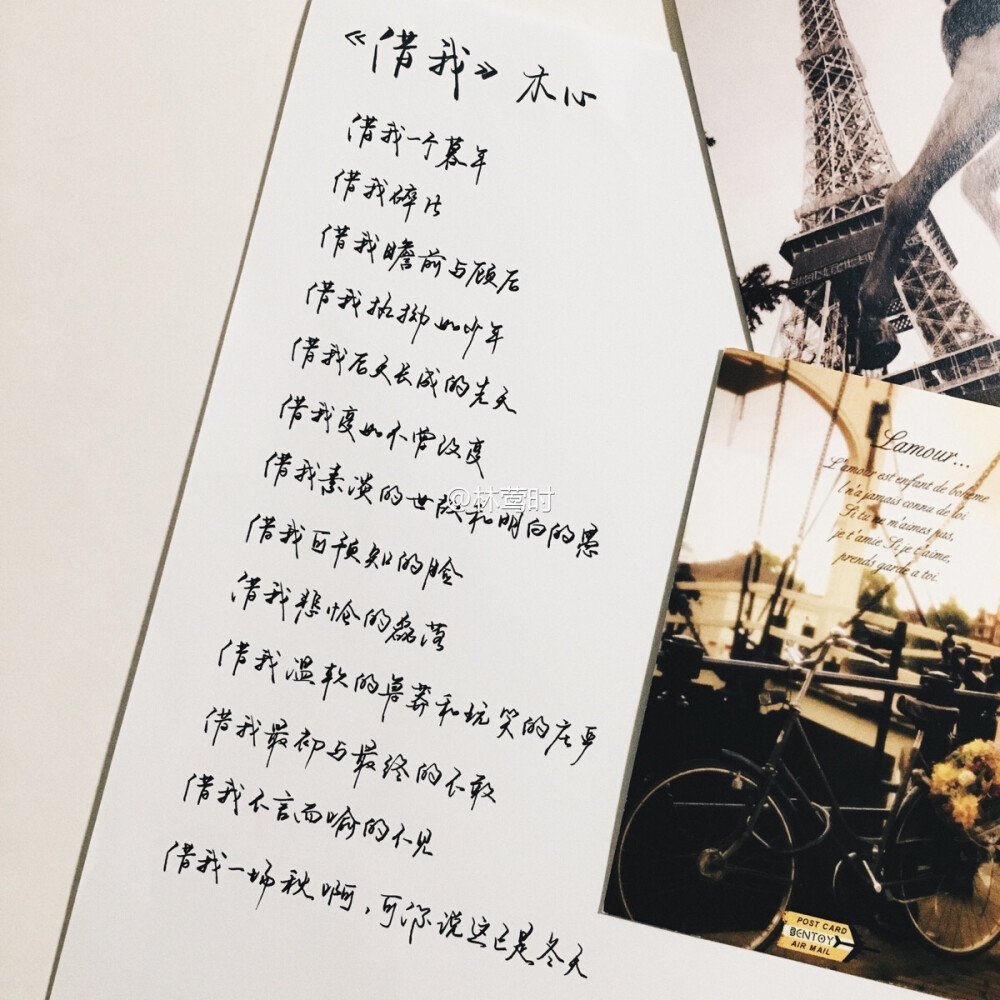 《借我》木心
借我一个暮年
借我碎片
借我瞻前与顾后
借我执拗如少年
借我后天长成的先天
借我变如不曾改变
借我素淡的世故和明白的愚
借我可预知的脸
借我悲怆的磊落
借我温软的鲁莽和玩笑的庄严
借我最初与最终的不敢
借我不言而喻的不见
借我一场秋啊,可你说这已是冬天
@林莺时
L'amour...
L'amour est enfant de boheme
l n'a jamais connu de loi
Si tu ne m'aimes pas,
je t'amie. Si je t'aime,
prends garde a toi.
POST CARD
BENTOY
AIR MAIL